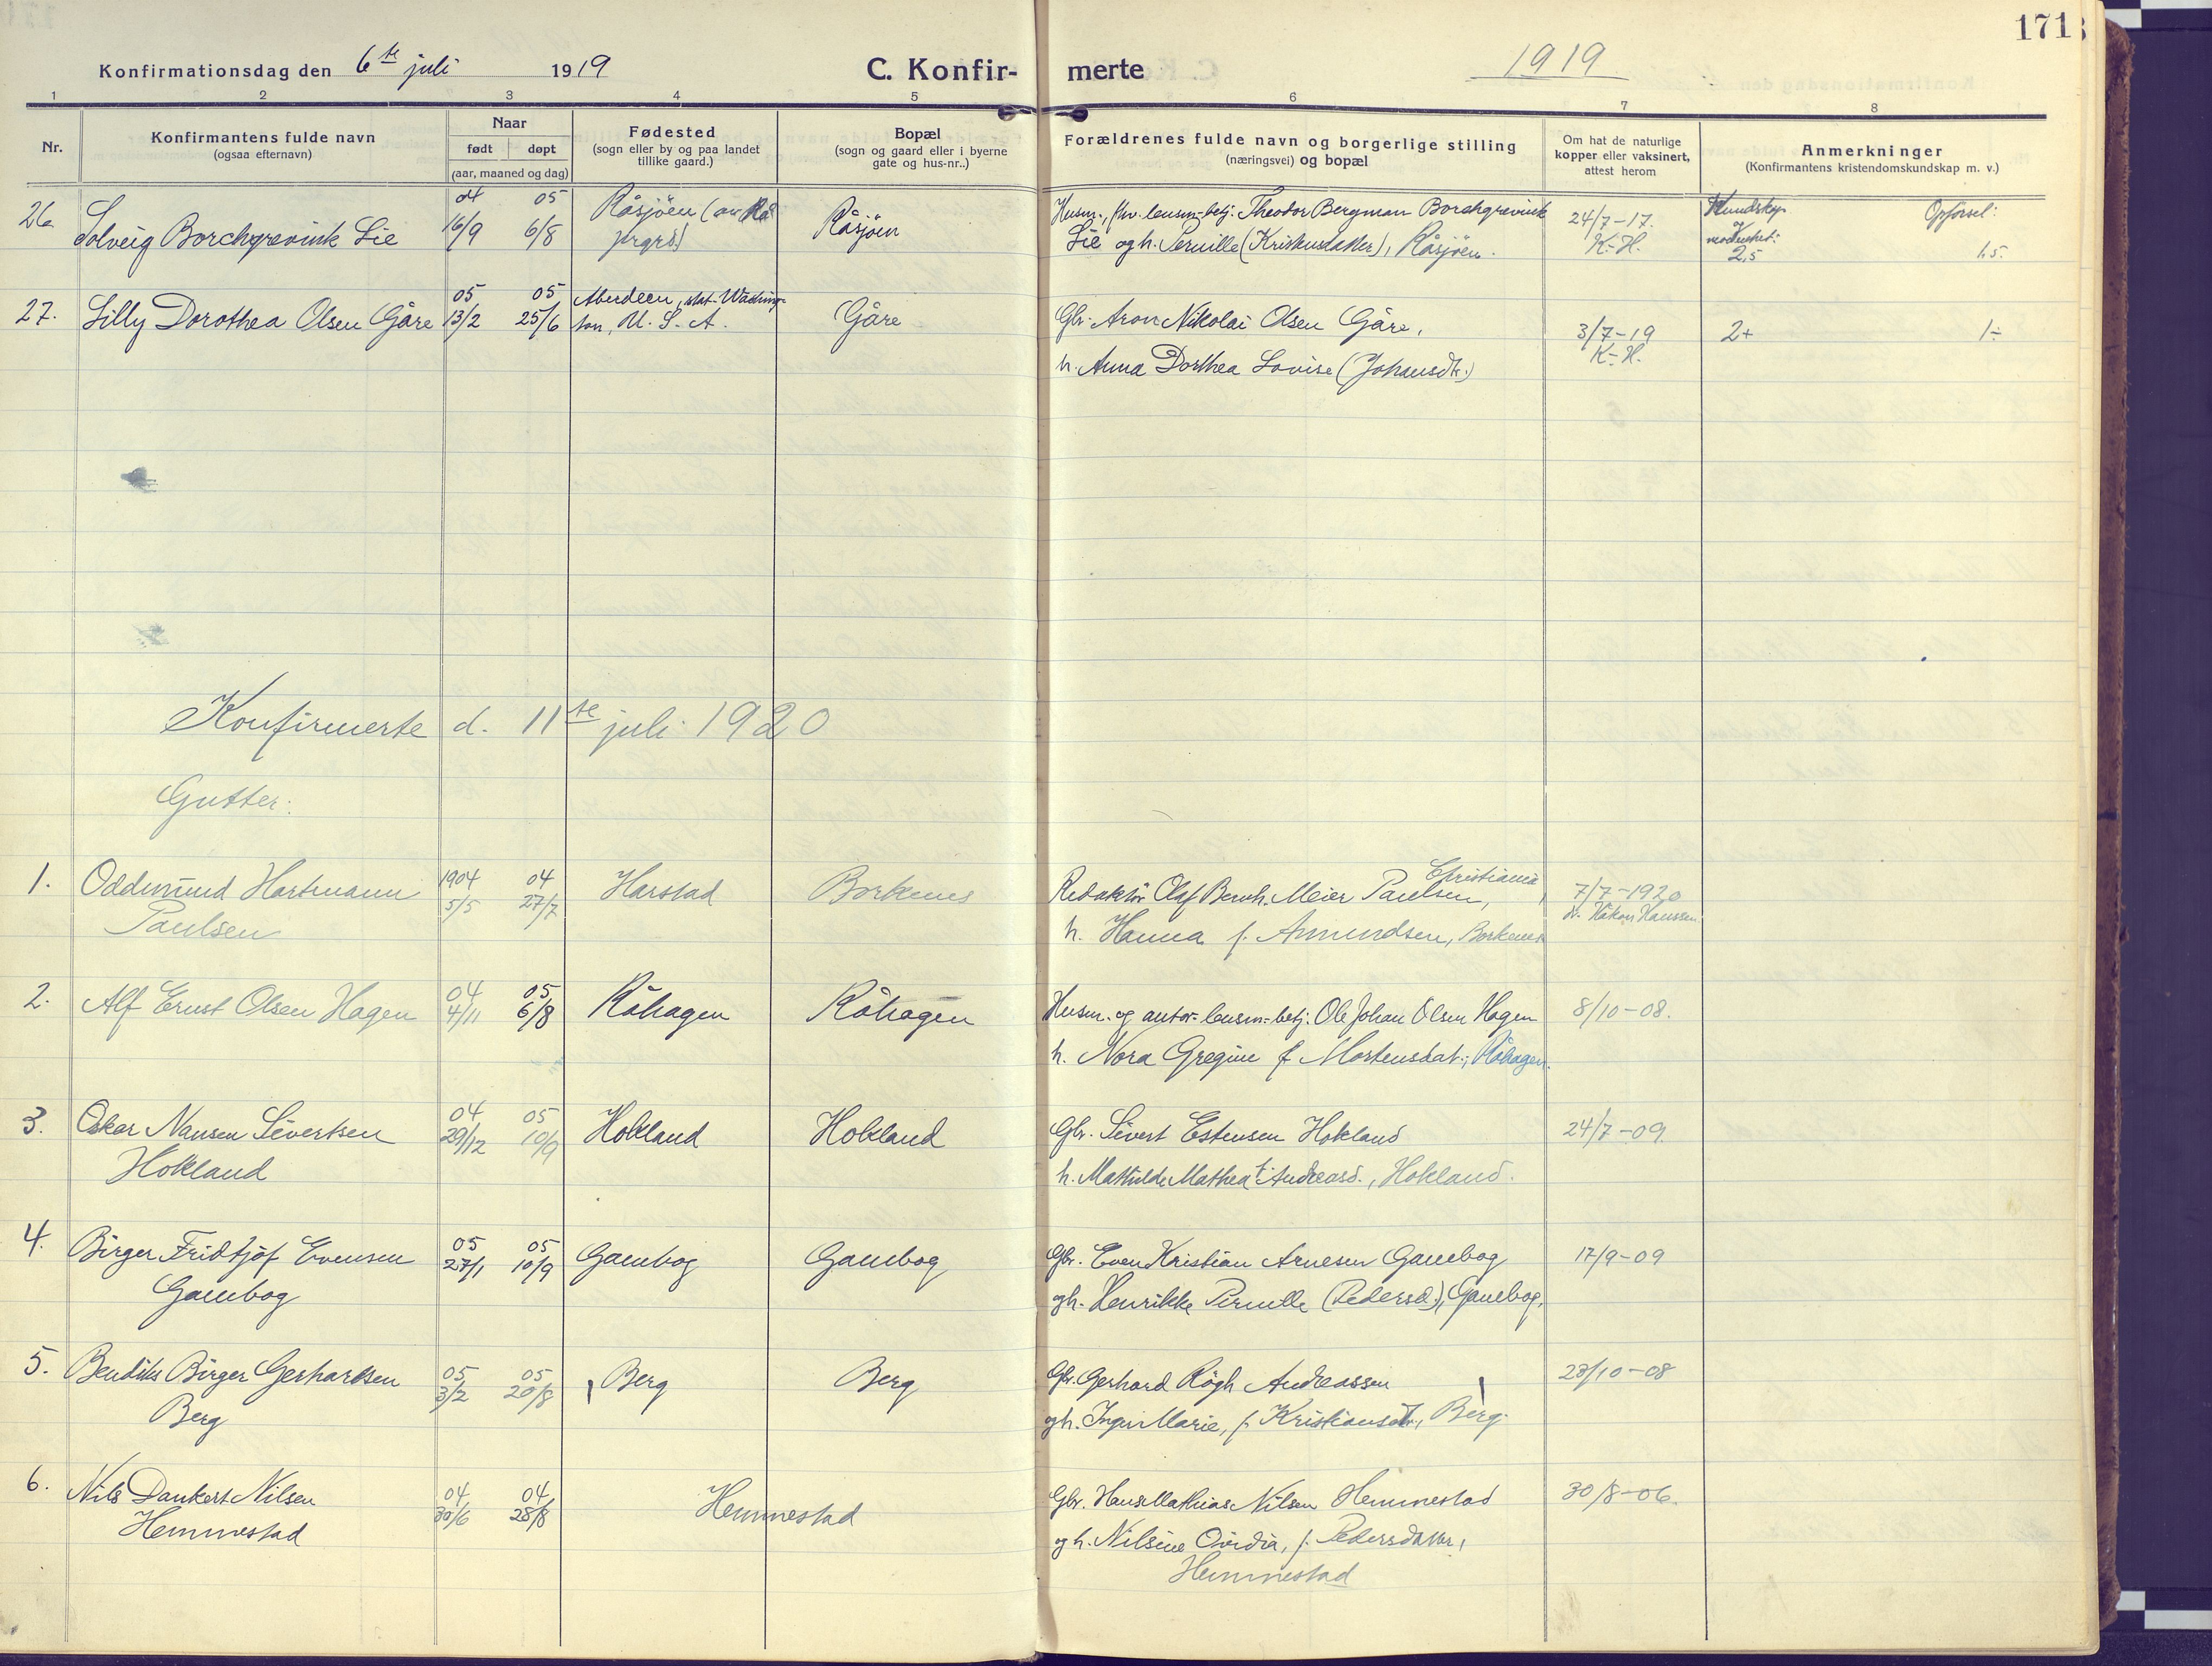 171
Konfirmationsdag den 6te juli 1919
C. Konfir- merte
1919
1 2 3 4 5 6 7 8
Nr.
Konfirmantens fulde navn
(ogsaa efternavn)
Naar
født døpt
(aar, maaned og dag)
Fødested
(sogn eller by og paa landet
tillike gaard.)
Bopæl
(sogn og gaard eller i byerne
gate og hus-nr..)
Forældrenes fulde navn og borgerlige stilling
(næringsvei) og bopæl
Om hat de naturlige
kopper eller vaksinert,
attest herom
Anmerkninger
(Konfirmantens kristendomskundskap m. v.)
26
Solveig Borchgrevink Lie
04
16/9
05
6/8
Råsjöen (av Rå
prgrd.)
Råsjöen
Husm., fhv. lensm.-betj. Theodor Bergman Borchgrevink
Lie og h. Pernille (Kristensdatter), Råsjöen.
24/7-17.
K.-H.
Kundskp.
og
modenhet:
2,5
Opförsel:
1.5.
27.
Lilly Dorothea Olsen Gåre
05
13/2
05
25/6
Aberdeen, stat. Washing-
ton, U. S. A.
Gåre
Gbr. Aron Nikolai Olsen Gåre,
h. Anna Dorthea Lovise (Johansdtr.)
3/7-19
K.-H.
2+
1÷
Konfirmerte d. 11te juli 1920
Gutter:
1.
Oddmund Hartmann
Paulsen
1904
5/5
04
27/7
Harstad
Borkenes
Christiania
Redaktör Olaf Bernh. Meier Paulsen,
h. Hanna f. Amundsen, Borkenes
7/7-1920
dr. Håkon Hanssen
2.
Alf Ernst Olsen Hagen
04
4/11
05
6/8
Råhagen
Råhagen
Husm. og autor. lensm.-betj. Ole Johan Olsen Hagen
h. Nora Gregine f. Mortensdat., Råhagen.
8/10-08.
3.
Oskar Nansen Sivertsen
Hokland
04
29/12
05
10/9
Hokland
Hokland
Gbr. Sivert Estensen Hokland
h. Mathilde Mathea f. Andreasd., Hokland.
24/7-09
4.
Birger Fridtjof Evensen
Gausbog
05
27/1
05
10/9
Gausbog
Gausbog
Gbr. Even Kristian Arnesen Gausbog
og h. Henrikke Pernille (Pedersd.), Gausbog.
17/9-09
5.
Bendiks Birger Gerhardsen
Berg
05
3/2
05
20/8
Berg
Berg
Gbr. Gerhard Rögh Andreassen
og h. Inger Marie, f. Kristiansdtr., Berg.
28/10-08
6.
Nils Dankert Nilsen
Hemmestad
04
30/6
04
28/8
Hemmestad
Gbr. Hans Mathias Nilsen Hemmestad
og h. Nilsine Ovidia, f. Pedersdatter,
Hemmestad
30/8-06.